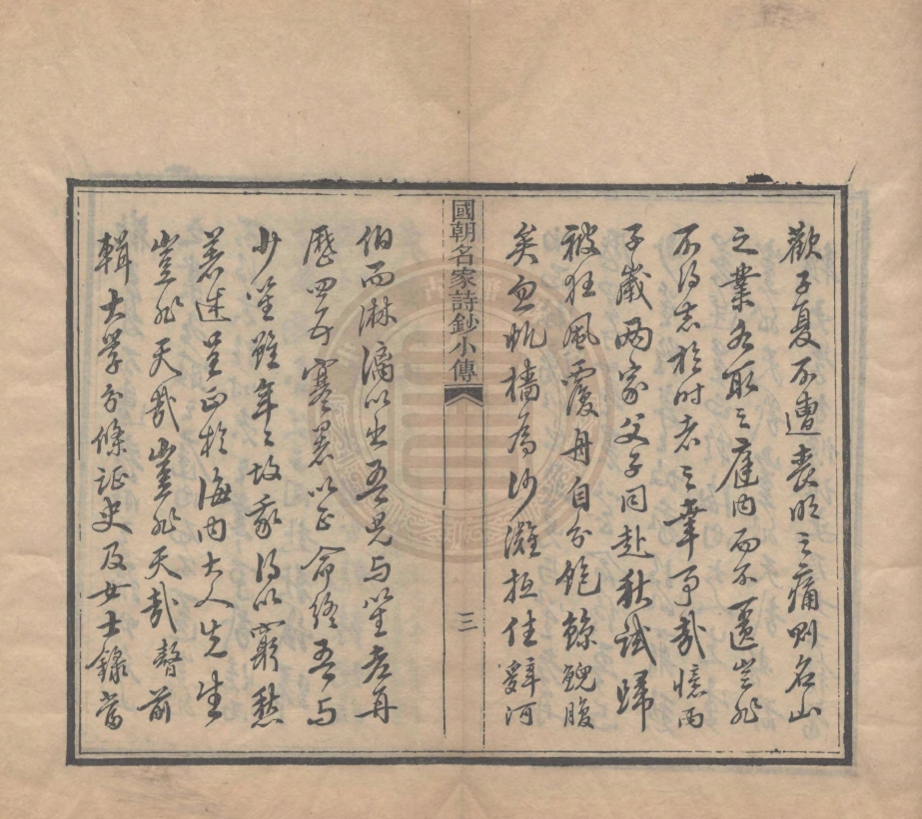 歡子夏不遭喪明之痛則名山
之業各取之庭內而不遺豈非
不得志於時者之幸事哉憶丙
子歲兩家父子同赴秋試歸
被狂風覆舟自分飽鯨鯢腹
矣忽帆檣為沙灘抵住辭河
國朝名家詩鈔小傳
三
伯而淋漓以出吾兄与笙老再
歷四五寒暑以正命終吾与
少笙雖年年坎 得以窮愁
著述呈正於海內大人先生
豈非天哉豈非天哉 前
輯大學分條證史及女士錄當